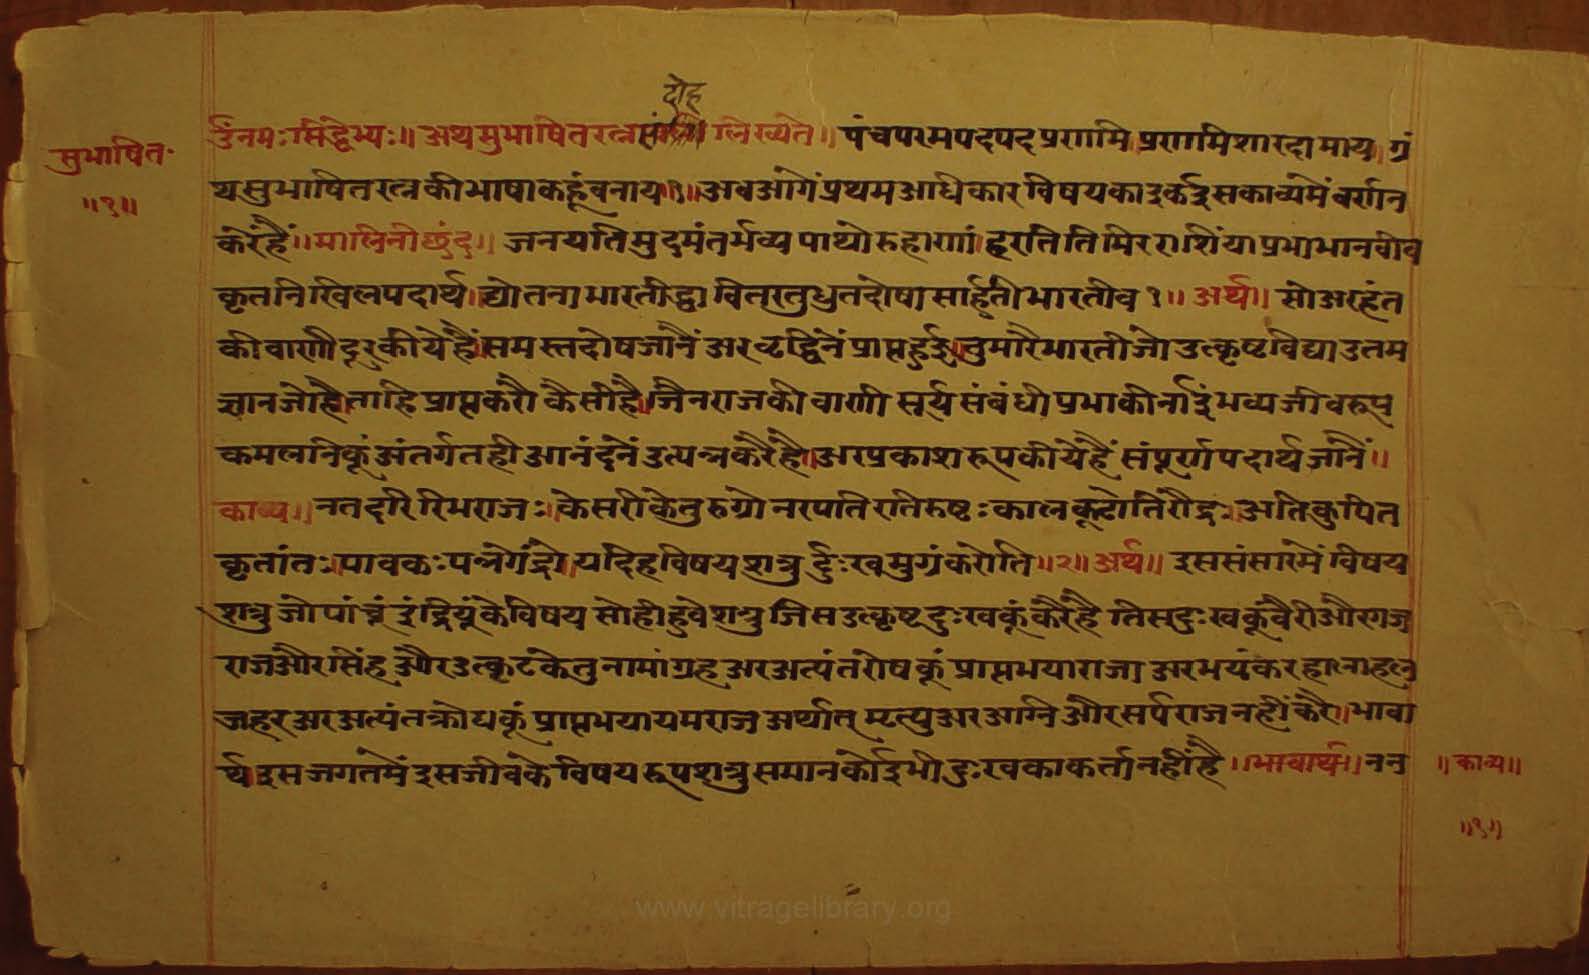 दोह
सुभाषित॰
॥१॥
उँनमःसिद्धेभ्यः॥ अथसुभाषितरत्नसं लिख्यते॥ पंचपरमपदपद प्रणामि प्रणामिशारदामाय। ग्रं
थसुभाषितरत्नकीभाषाकहूंबनाय॥१॥ अबआगेंप्रथमअधिकारविषयकाइकईसकाव्यमेंवर्णन
करेहैं॥मालिनीछंद॥ जनयतिमुदमंतर्भव्यपाथोरुहाणां।हरतितिमिरराशिंयाप्रभाभानवीव
कृतनिखिलपदार्थ।द्योतनाभारतीद्धावितरतुधुतदोषासार्हतीभारतीव १॥ अर्थ॥ सोअरहंत
कीवाणीदूरकीयेहैं।समस्तदोषजानैं अरऋद्धिनें प्राप्तहुई।तुमारैभारतीजोउत्कृष्टविद्याउतम
ज्ञानजोहै।ताहिप्राप्तकरौ कैसीहै।जिनराजकीवाणी सूर्यसंबंधीप्रभाकीनांईंभव्यजीवरूप
कमलनिकूंअंतर्गतहीआनंदनेंउत्पन्नकरैहै।अरप्रकाशरूपकीयेहैं संपूर्णपदार्थजानैं॥
काव्य॥ नतदरिरिभराजः।केसरीकेतुरुग्रो नरपतिरतिरुष्टःकालकूटोतिरौद्रः।अतिकुपित
कृतांतः।पावकःपन्नगेंद्रो।यदिहविषयशत्रुर्दुःखमुग्रंकरोति॥२॥अर्थ॥ इससंसारमेंविषय
शत्रुजोपांचूंइंद्रियूंकेविषयसोहीहुवेशत्रुजिसउत्कृष्टदुःखकूंकरैहै तिसदुःखकूंवैरीऔरगज
राजऔरसिंहऔरउत्कृटकेतुनामांग्रहअरअत्यंतरोषकूं प्राप्तभयाराजा अरभयंकरहालाहल
जहरअरअत्यंतक्रोधकूंप्राप्तभयायमराजअर्थात् मृत्युअरअग्निऔरसर्पराजनहींकरै।भावा
र्थ।इसजगतमेंइसजीवकेविषयरूपशत्रुसमानकोईभीदुःखकाकर्त्तानहींहै॥भावार्थ॥नन
॥काव्य॥
॥१॥
www.vitragelibrary.org